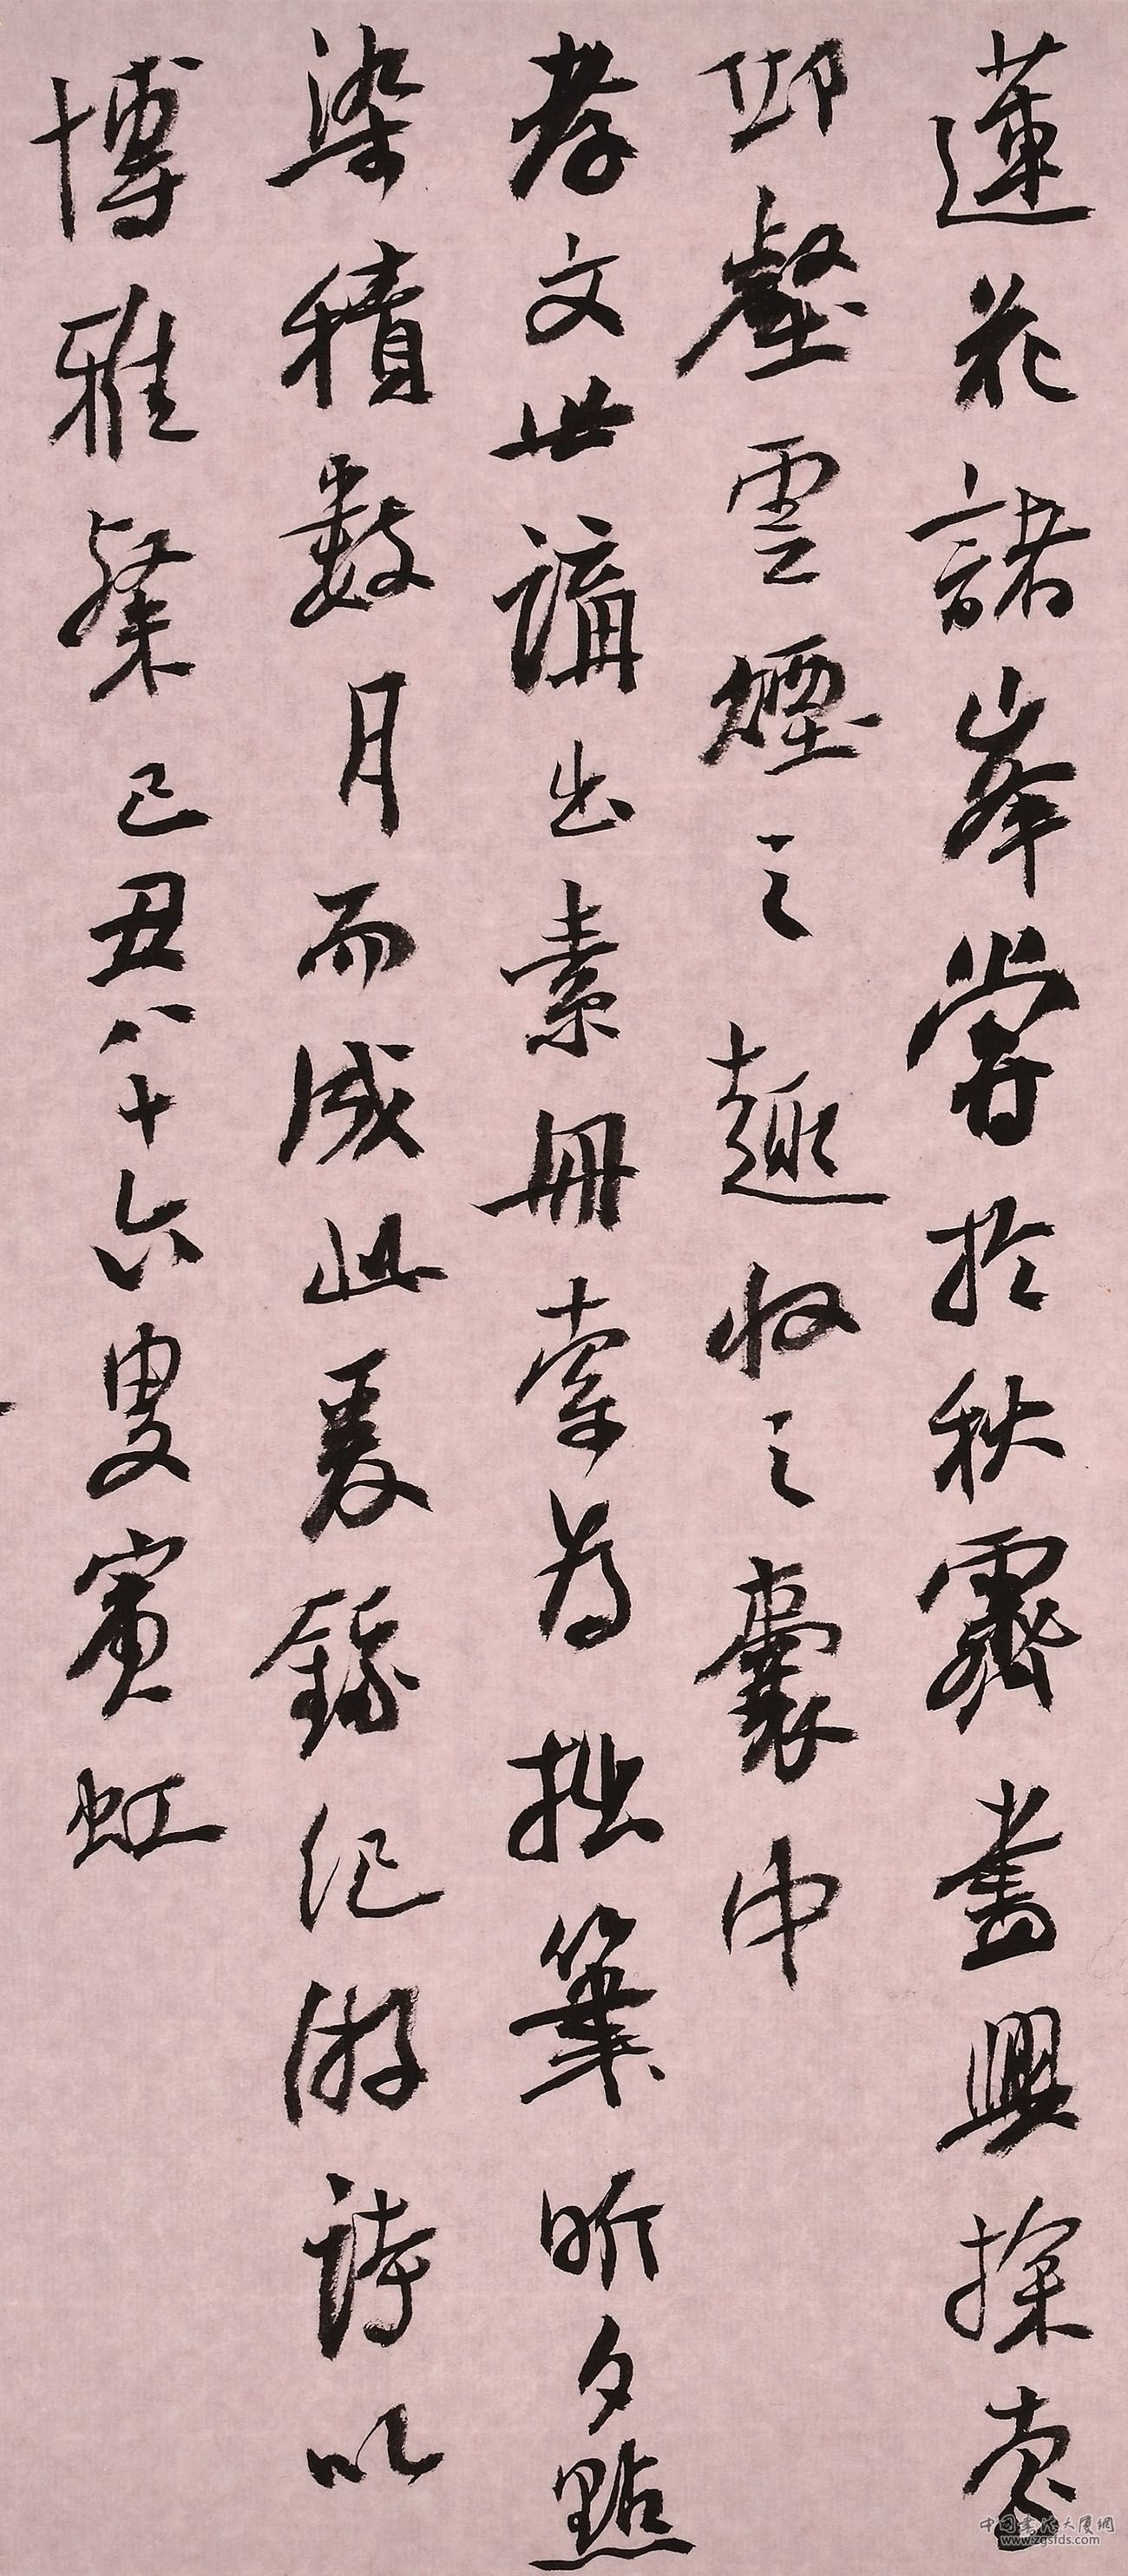 蓮花諸峯嘗於秋霽畫興探索
邱壑雲煙之趣收之囊中
孝文世講出素冊索為拙筆昕夕點
染積數月而成此爰錄紀游詩以
博雅粲己丑八十六叟賓虹
中国书法大厦網
www.zgsfds.com